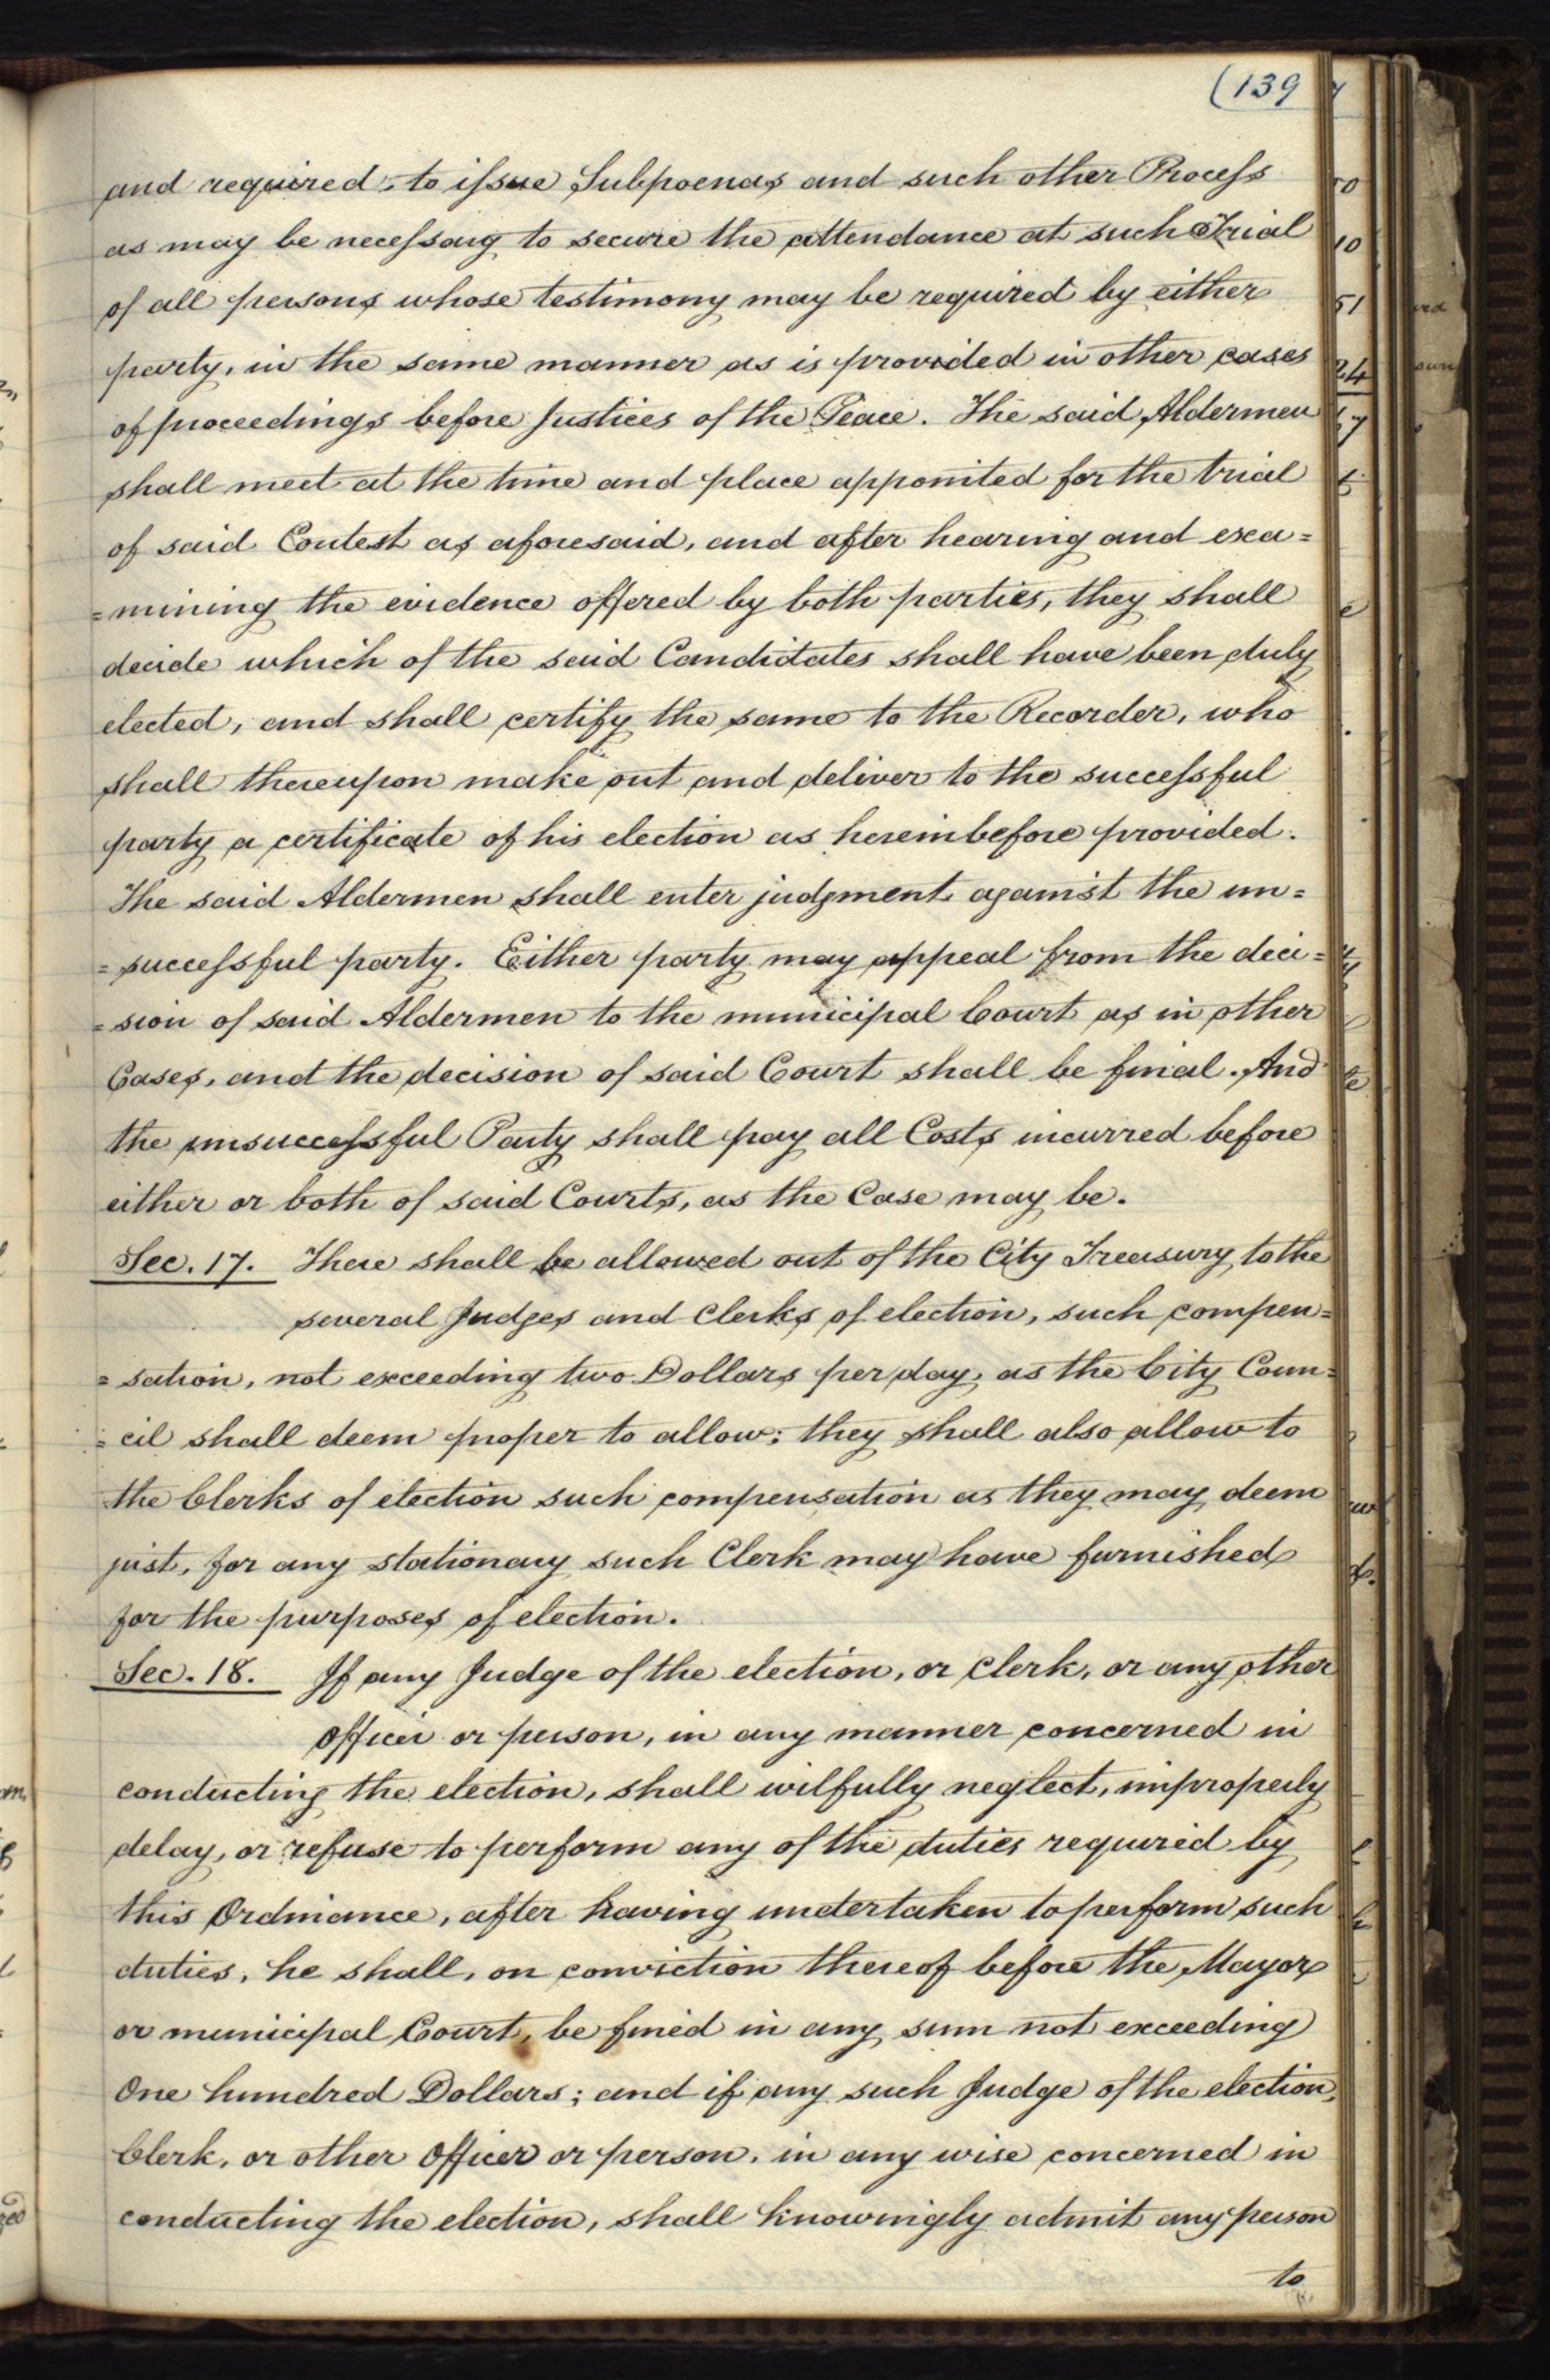 (139
and required, to issue Subpoenas and such other Process
as may be necessary to secure the attendance at such Trial
of all persons whose testimony may be required by either
party, in the same manner as is provided in other cases
of proceedings before Justices of the Peace. The said Aldermen
shall meet at the time and place appointed for the trial
of said Contest as aforesaid, and after hearing and exa=
=mining the evidence offered by both parties, they shall
decide which of the said Candidates shall have been duly
elected, and shall certify the same to the Recorder, who
shall thereupon make out and deliver to the successful
party a certificate of his election as hereinbefore provided.
The said Aldermen shall enter judgment against the un=
=successful party. Either party may appeal from the deci=
=sion of said Aldermen to the municipal Court as in other
Cases, and the decision of said Court shall be final. And
the unsuccessful Party shall pay all Costs incurred before
either or both of said Courts, as the Case may be.
Sec. 17. There shall be allowed out of the City Treasury, to the
several Judges and Clerks of election, such compen=
=sation, not exceeding two Dollars per day, as the City Coun=
=cil shall deem proper to allow; they shall also allow to
the Clerks of election such compensation as they may deem
just, for any stationary such Clerk may have furnished
for the purposes of election.
Sec. 18. If any Judge of the election, or Clerk, or any other
Officer or person, in any manner concerned in
conducting the election, shall wilfully neglect, improperly
delay, or refuse to perform any of the duties required by
this Ordinance, after having undertaken to perform such
duties, he shall, on conviction thereof before the Mayor
or municipal Court, be fined in any sum not exceeding
One hundred Dollars; and if any such Judge of the election,
Clerk, or other Officer or person, in any wise concerned in
conducting the election, shall knowingly admit any person
to